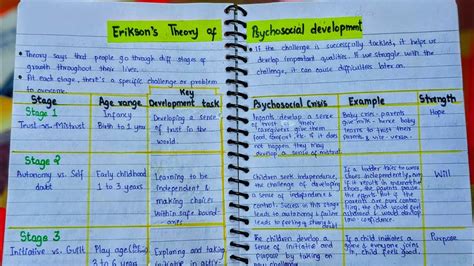 Erikson's Theory of Psychosocial development
• Theory says that people go through diff stages of
growth throughout their lives.
• At each stage, there's a specific challenge or problem
to overcome.
• If the challenge is successfully tackled, it helps us
develop important qualities. If we struggle with the
challenge, it can cause difficulties later on.
Stage
Age range
Key
Development task
Psychosocial Crisis
Example
Strength
Stage 1
Trust vs Mistrust
Infancy
Birth to 1 year
Developing a sense
of trust in the
world.
Infants develop a sense
of trust, if their
caregivers give them
food, comfort, etc. If it does
not happen they may
develop a sense of mistrust.
Baby cries - parents
give milk - hence baby
learns to trust their
parents & vice-versa.
Hope
Stage 2
Autonomy vs Self
doubt
Early childhood
1 to 3 years
Learning to be
independent &
making choices
Within safe bound-
aries.
Children seek independence,
the challenge of developing
a sense of independence &
control. Success in this stage
leads to autonomy & failure
leads to feeling of shame &
doubt.
If a toddler tries to wear
shoes independently,
the parents
the
parents are
controlling, the child would feel
ashamed & would develop
low confidence.
Will
Stage 3
Initiative vs. Guilt
Play age
3 to 6 years
Exploring and taking
initiative in
children develop a
sense of initiative and
purpose by taking on
new challenges
If a child initiates
a
is given
it feels
Purpose